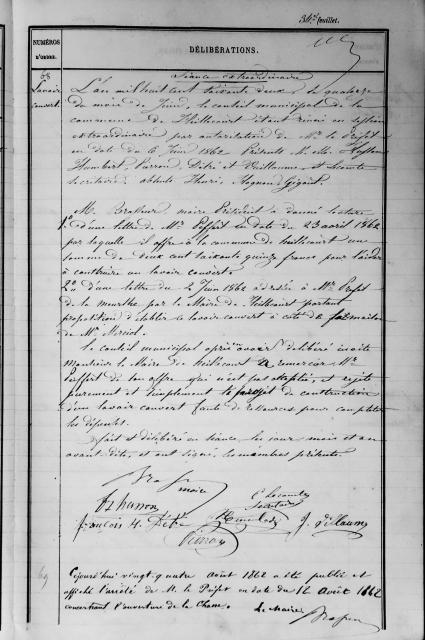 34e feuillet.
NUMÉROS
D'ORDRE.
DÉLIBÉRATIONS.
68
Lavoir
couvert.
Séance extraordinaire
L'an mil huit cent soixante deux, le quatorze
du mois de Juin, le conseil municipal de la
commune de Thillecourt étant réuni en session
extraordinaire par autorisation de Mr. le Préfet
en date du 6 Juin 1862. Présents M. Mrs.
Humbert, Pierron, Didié et Guillaume, et Lecomte
Secrétaire, absents Henri,
M. Brasseur, maire Président a donné lecture
1o. d'une lettre de Mr. en date du 23 avril 1862
par laquelle il offre à la commune de thillecourt une
somme de deux cent soixante quinze francs pour l'aider
à construire un lavoir couvert.
2o. d'une lettre du 2 Juin 1862 adressée à Mr. Préfet
de la meurthe par le Maire de thillecourt portant
proposition d'établir ce lavoir couvert à côté de la maison
de Mr.
Le conseil municipal après avoir délibéré invite
Monsieur le Maire de thillecourt à remercier Mr.
de son offre qui n'est pas acceptée, et rejette
purement et simplement le projet de construction
d'un lavoir couvert faute de ressources pour compléter
les dépenses.
Fait et délibéré en séance, les jour mois et an
avant dits, et ont signé, les membres présents.
maire
C Lecomte
Secrétaire
françois H.
Pierron
J. Guillaume
69
Cejourd'hui vingt quatre Août 1862 a été publié et
affiché l'arrêté de M. le Préfet en date du 12 Août 1862
concernant l'ouverture de la Chasse.
Le Maire